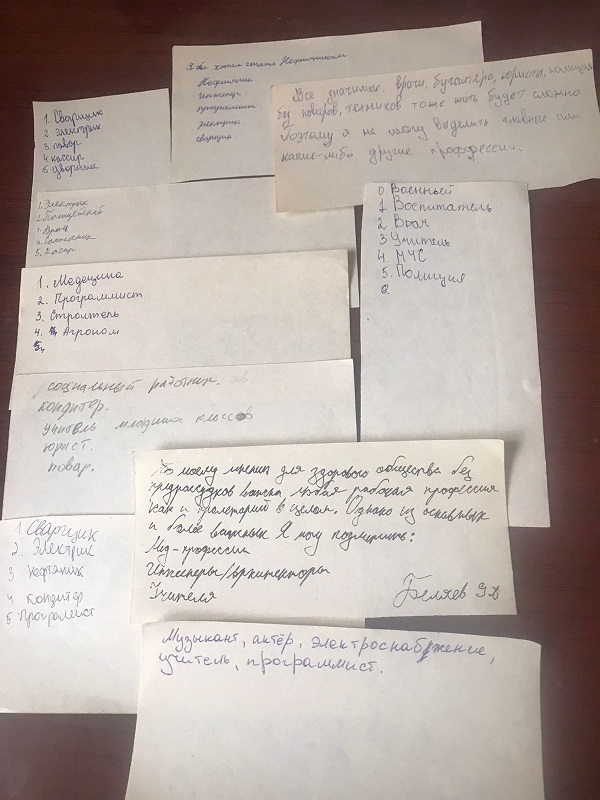 Я бы хотел стать Нефтяником
Нефтяник
Инженер
программист
электрик
сварщик
Все значимые. врачи, бугалтера, юристы, полиция
без поваров, техников тоже жить будет сложно
Поэтому я не могу выделить главные или
какие-либо другие профессии.
1. Сварщик
2. Электрик
3. повар
4 кассир
5. дворник
1. Электрик
2. Полицейский
3. Врач
4. Сантехник
5. Касир
0. Военный
1 Воспитатель
2 Врач
3 Учитель
4. МЧС
5. Полиция
1. Медецина
2. Программист
3. Строитель
4. Агроном
социальный работник.
кондитер.
учитель младших классов
юрист.
повар.
По моему мнению для здорового общества без
предрассудков важна любая рабочая профессия
как и пролетарий в целом. Однако из основных
и более важных Я могу подчеркнуть:
Мед-профессии
Инженеры/архитекторы
Учителя
Беляев
1 Сварщик
2. Электрик
3 Нефтяник
4 Кондитер
5 Програмист
Музыкант, актёр, электроснабжение,
учитель, программист.